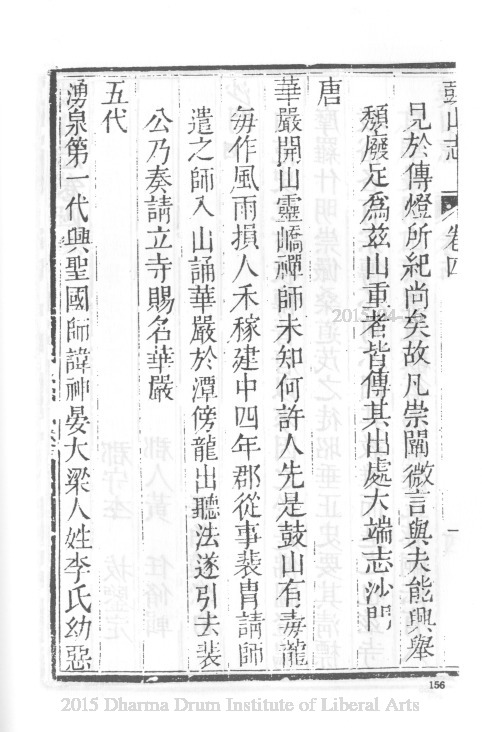 鼓山志
卷四
一
見於傳燈所紀尚矣故凡崇闡微言與夫能興舉
頹廢足爲茲山重者皆傳其出處大端志沙門
唐
華嚴開山靈嶠禪師未知何許人先是鼓山有毒龍
每作風雨損人禾稼建中四年郡從事裴胄請師
遣之師入山誦華嚴於潭傍龍出聽法遂引去裴
公乃奏請立寺賜名華嚴
五代
湧泉第一代興聖國師諱神晏大梁人姓李氏幼惡
156
2015 Dharma Drum Institute of Liberal Arts